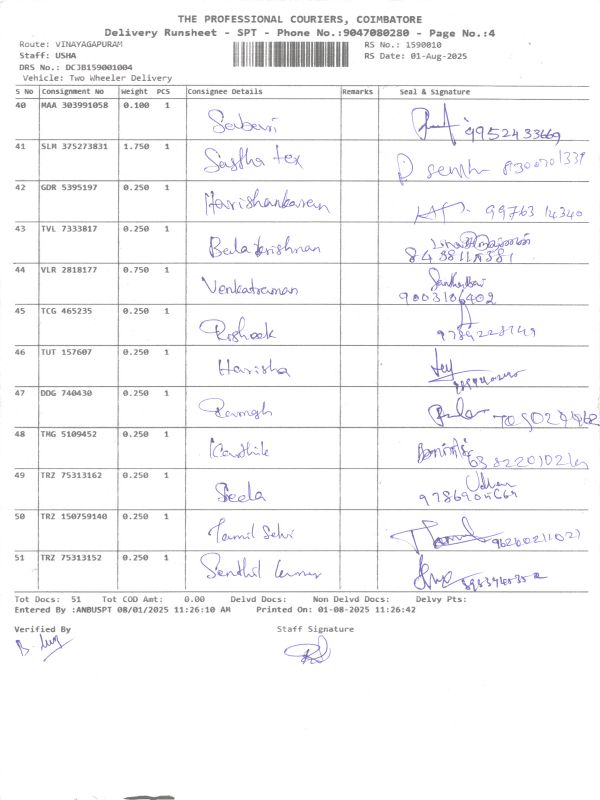 THE PROFESSIONAL COURIERS, COIMBATORE
Delivery Runsheet - SPT - Phone No.:9047080280 - Page No.:4
Route: VINAYAGAPURAM RS No.: 1590010
Staff: USHA RS Date: 01-Aug-2025
DRS No.: DCJB159001004
Vehicle: Two Wheeler Delivery
S No Consignment No Weight PCS Consignee Details Remarks Seal & Signature
40 MAA 303991058 0.100 1 Sabari 9952433669
41 SLM 375273831 1.750 1 Sastha tex
42 GDR 5395197 0.250 1 Harishankaran 99763 14340
43 TVL 7333817 0.250 1 Balakrishnan
44 VLR 2818177 0.750 1 Venkatraman 9003106402
45 TCG 465235 0.250 1
46 TUT 157607 0.250 1 Harisha
47 DDG 740430 0.250 1 Ramesh
48 TMG 5109452 0.250 1 Karthik
49 TRZ 75313162 0.250 1 Seela
50 TRZ 150759140 0.250 1 Tamil Selvi
51 TRZ 75313152 0.250 1 Senthil kumar
Tot Docs: 51 Tot COD Amt: 0.00 Delvd Docs: Non Delvd Docs: Delvy Pts:
Entered By :ANBUSPT 08/01/2025 11:26:10 AM Printed On: 01-08-2025 11:26:42
Verified By Staff Signature